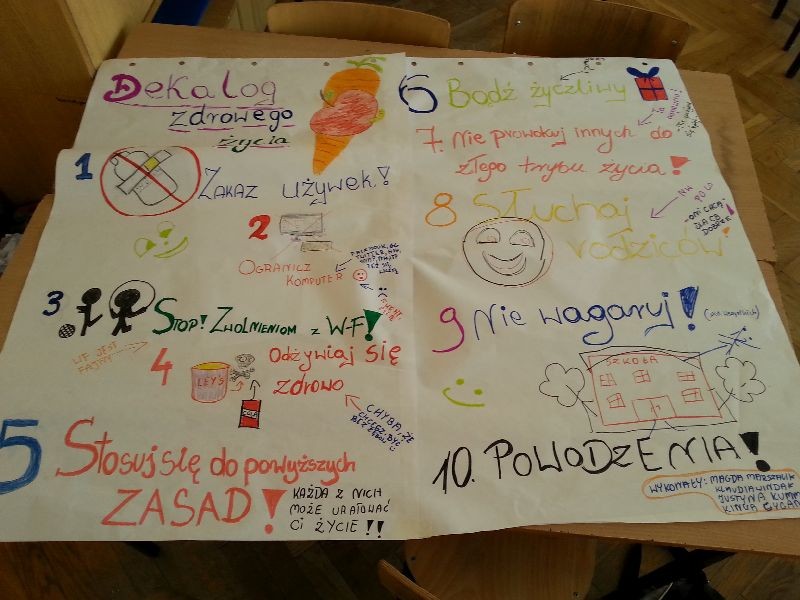 Dekalog
zdrowego
życia
1 Zakaz używek!
2
Ogranicz
komputer
3 Stop! Zwolnieniom z W-F!
WF JEST
FAJNY
4 Odżywiaj się
zdrowo
LEYS
COLA
CHYBA, ŻE
CHCESZ BYĆ
BEZ
5 Stosuj się do powyższych
ZASAD!
KAŻDA Z NICH
MOŻE URATOWAĆ
CI ŻYCIE!!
6 Bądź życzliwy
7. Nie prowokuj innych do
złego trybu życia!
8 Słuchaj
rodziców!
ONI CHCĄ
DLA CB
DOBRZE
9 Nie wagaruj!
SZKOŁA
10. POWODZENIA!
WYKONAŁY: MAGDA MARSZALIK
KLAUDIA WINDAK
JUSTYNA KUMM
KINGA CYGAN